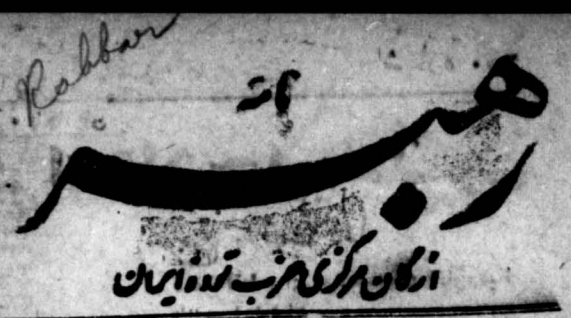 Rahbar
رهبر
ارگان مرکزی حزب توده ایران